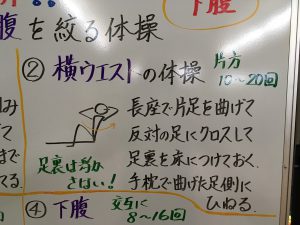 下腹
腹を絞る体操
② 横ウエストの体操
片方
10～20回
長座で片足を曲げて
反対の足にクロスして
足裏を床につけておく、
手枕で曲げた足側に
ひねる。
さない!
④ 下腹
交互に
8～16回